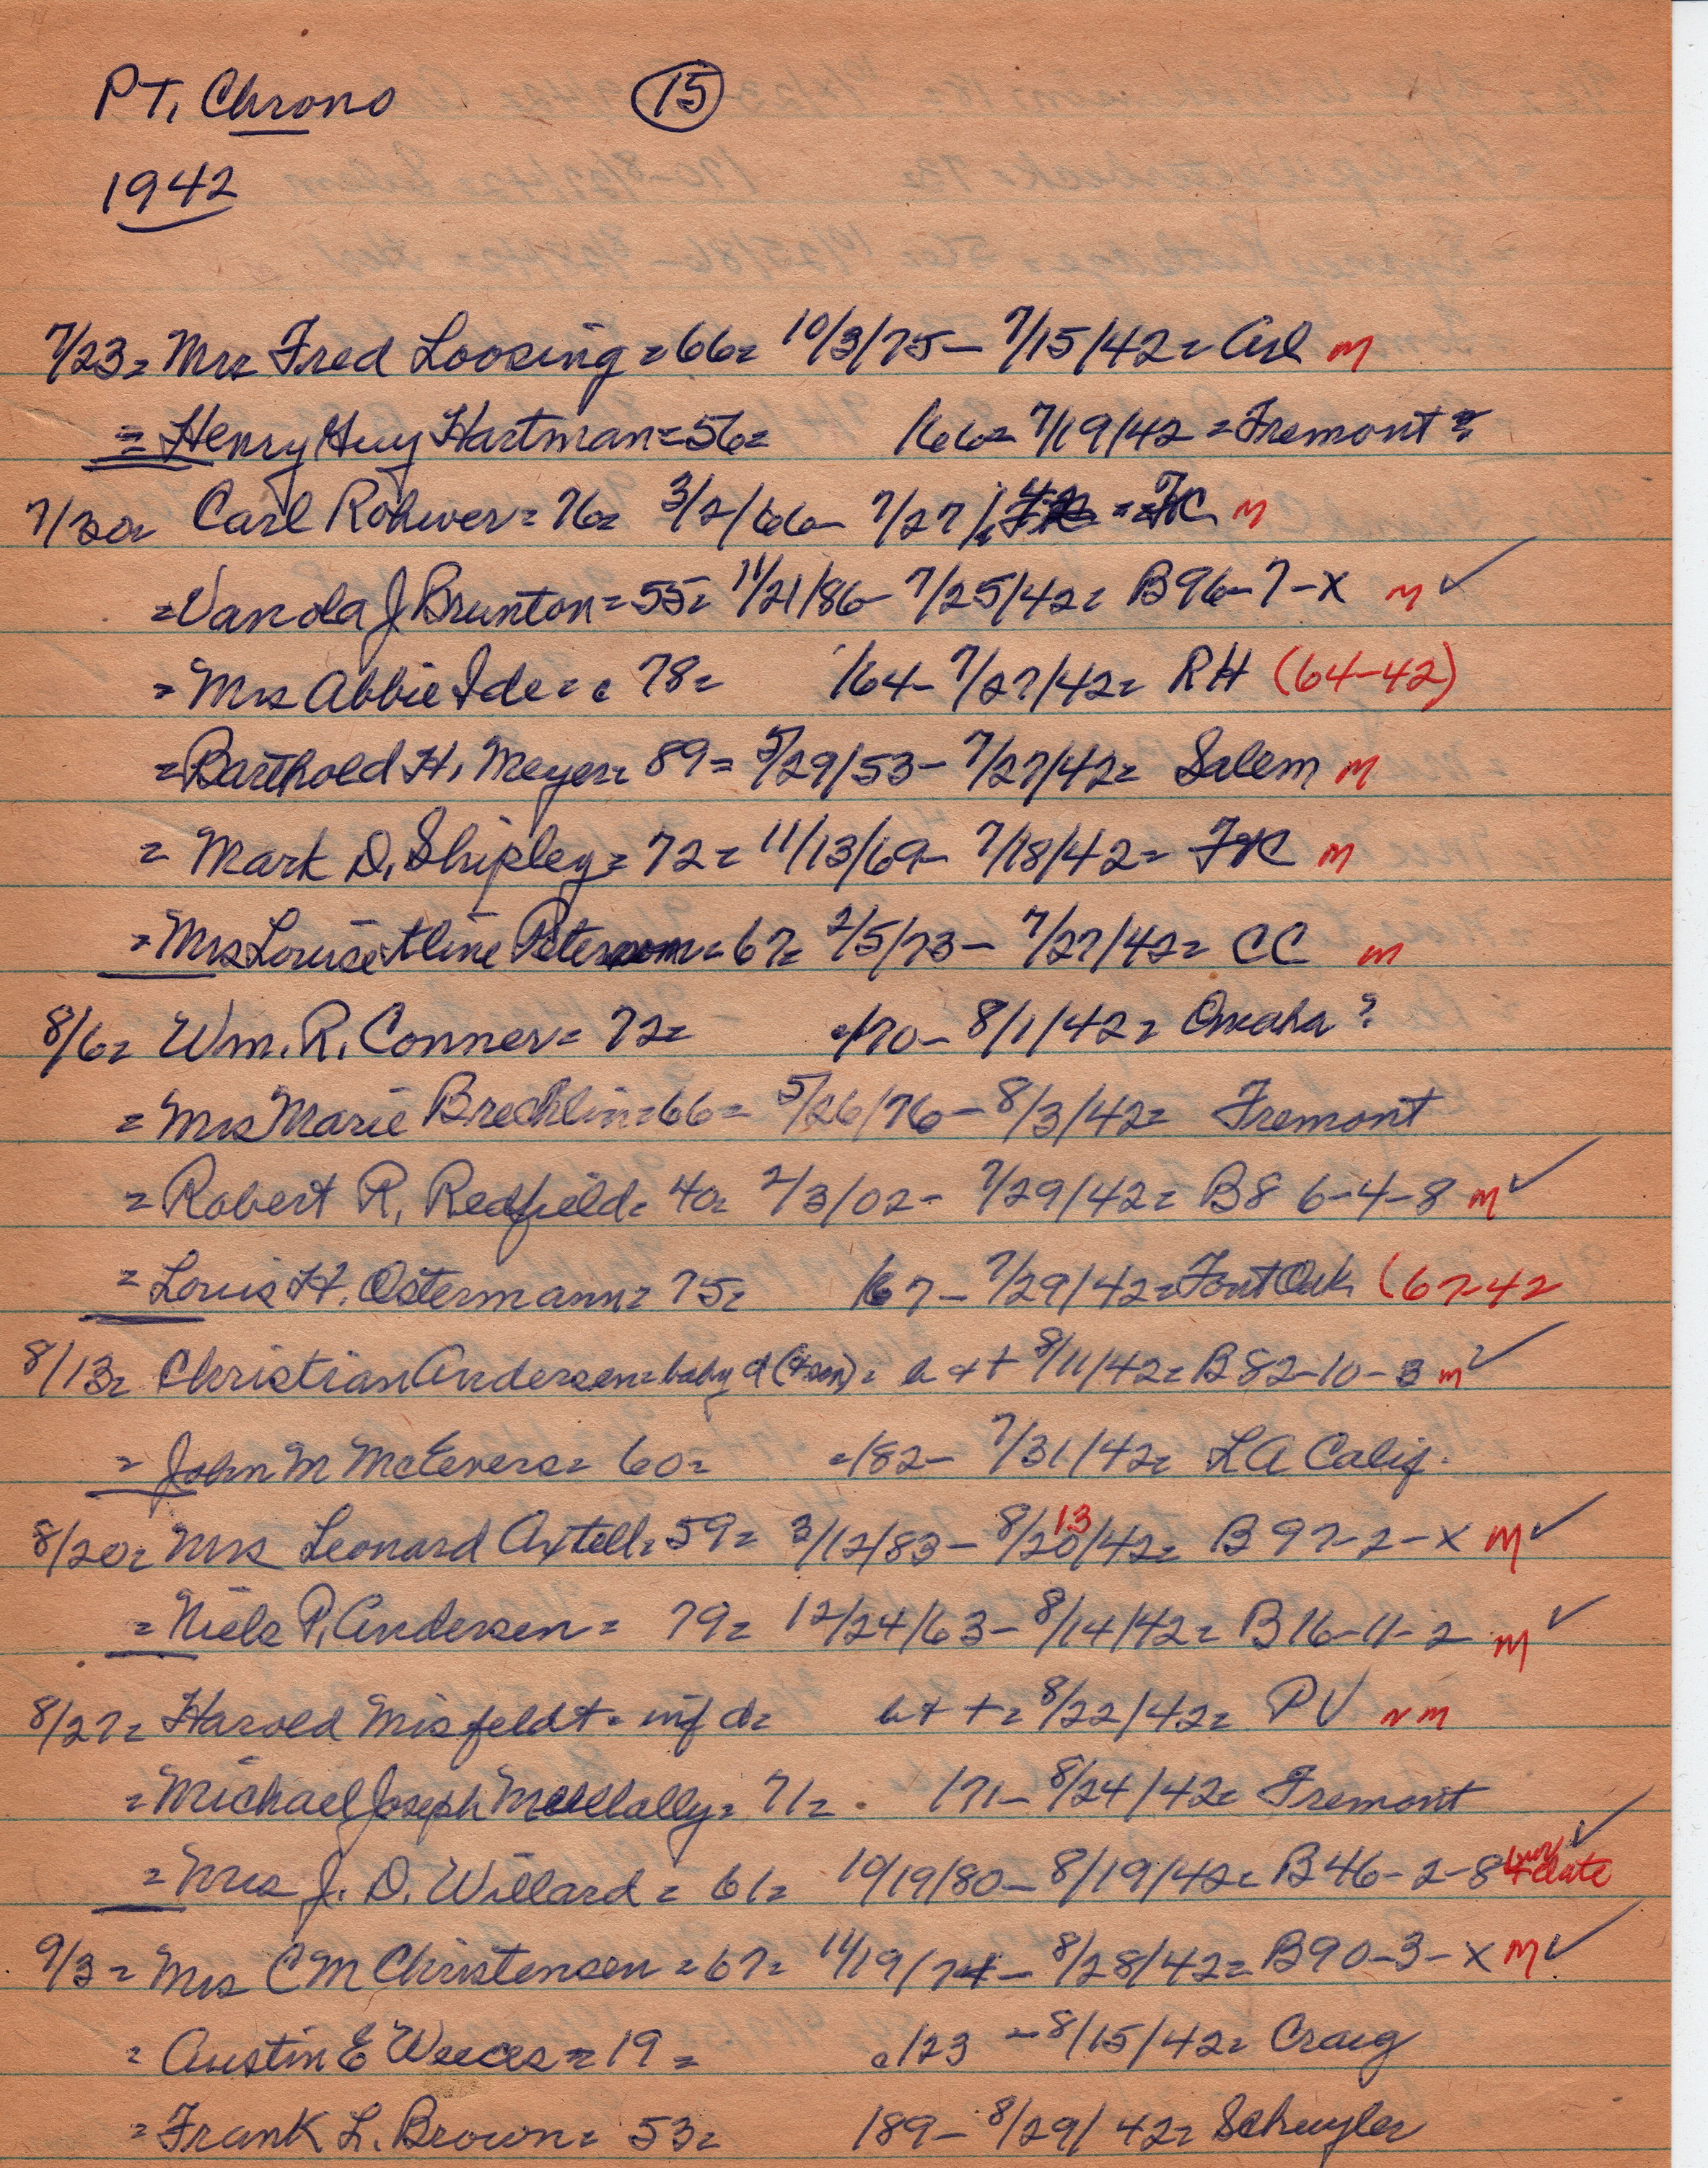 PT. Chrono 15
1942
7/23= Mrs Fred Loosing = 66= 10/3/75 - 7/15/42 = Arl m
= Henry Guy Hartman = 56= /66= 7/19/42 = Fremont ?
7/30= Carl Rohwer = 76= 3/2/66- 7/27/42 = FC m
= Vanola J Brunton = 55= 11/21/86- 7/25/42= B96-7-X m ✓
= Mrs Abbie Ide = c 78= /64- 7/27/42= RH (64-42)
= Barthold H. Meyer= 89= 5/29/53- 7/27/42= Salem m
= Mark D. Shipley = 72= 11/13/69- 7/18/42= m
= Mrs Louise Aline Peterson = 67= 2/5/73- 7/27/42= CC m
8/6= Wm. R. Conner= 72= =/70- 8/1/42= Omaha ?
= Mrs Marie Brechlin=66= 5/26/76- 8/3/42= Fremont
= Robert R. Redfield= 40= 2/3/02- 7/29/42= B86-4-8 m ✓
= Louis H. Ostermann= 75= /67- 7/29/42= (67-42
8/13= Christian Andersen=baby d (& son)= b & + 8/11/42= B82-10-3 m ✓
= John M McEvers= 60= =/82- 7/31/42= LA Calif.
8/20= Mrs Leonard Axtell= 59= 3/12/83- 8/20/42= 13 B97-2-X m ✓
= Niels P. Andersen= 79= 12/24/63- 8/14/42= B16-11-2 m ✓
8/27= Harold Misfeldt= inf d= b & += 8/22/42= PV nm
= Michael Joseph = 71= /71- 8/24/42= Fremont
= Mrs J. D. Willard= 61= 10/19/80- 8/19/42= B46-2-8 date ✓
9/3= Mrs C M Christensen = 67= 11/19/74- 8/28/42= B90-3-X m ✓
= Austin E = 19= c/23 - 8/15/42= Craig
= Frank L. Brown= 53= /89- 8/29/42= Schuyler